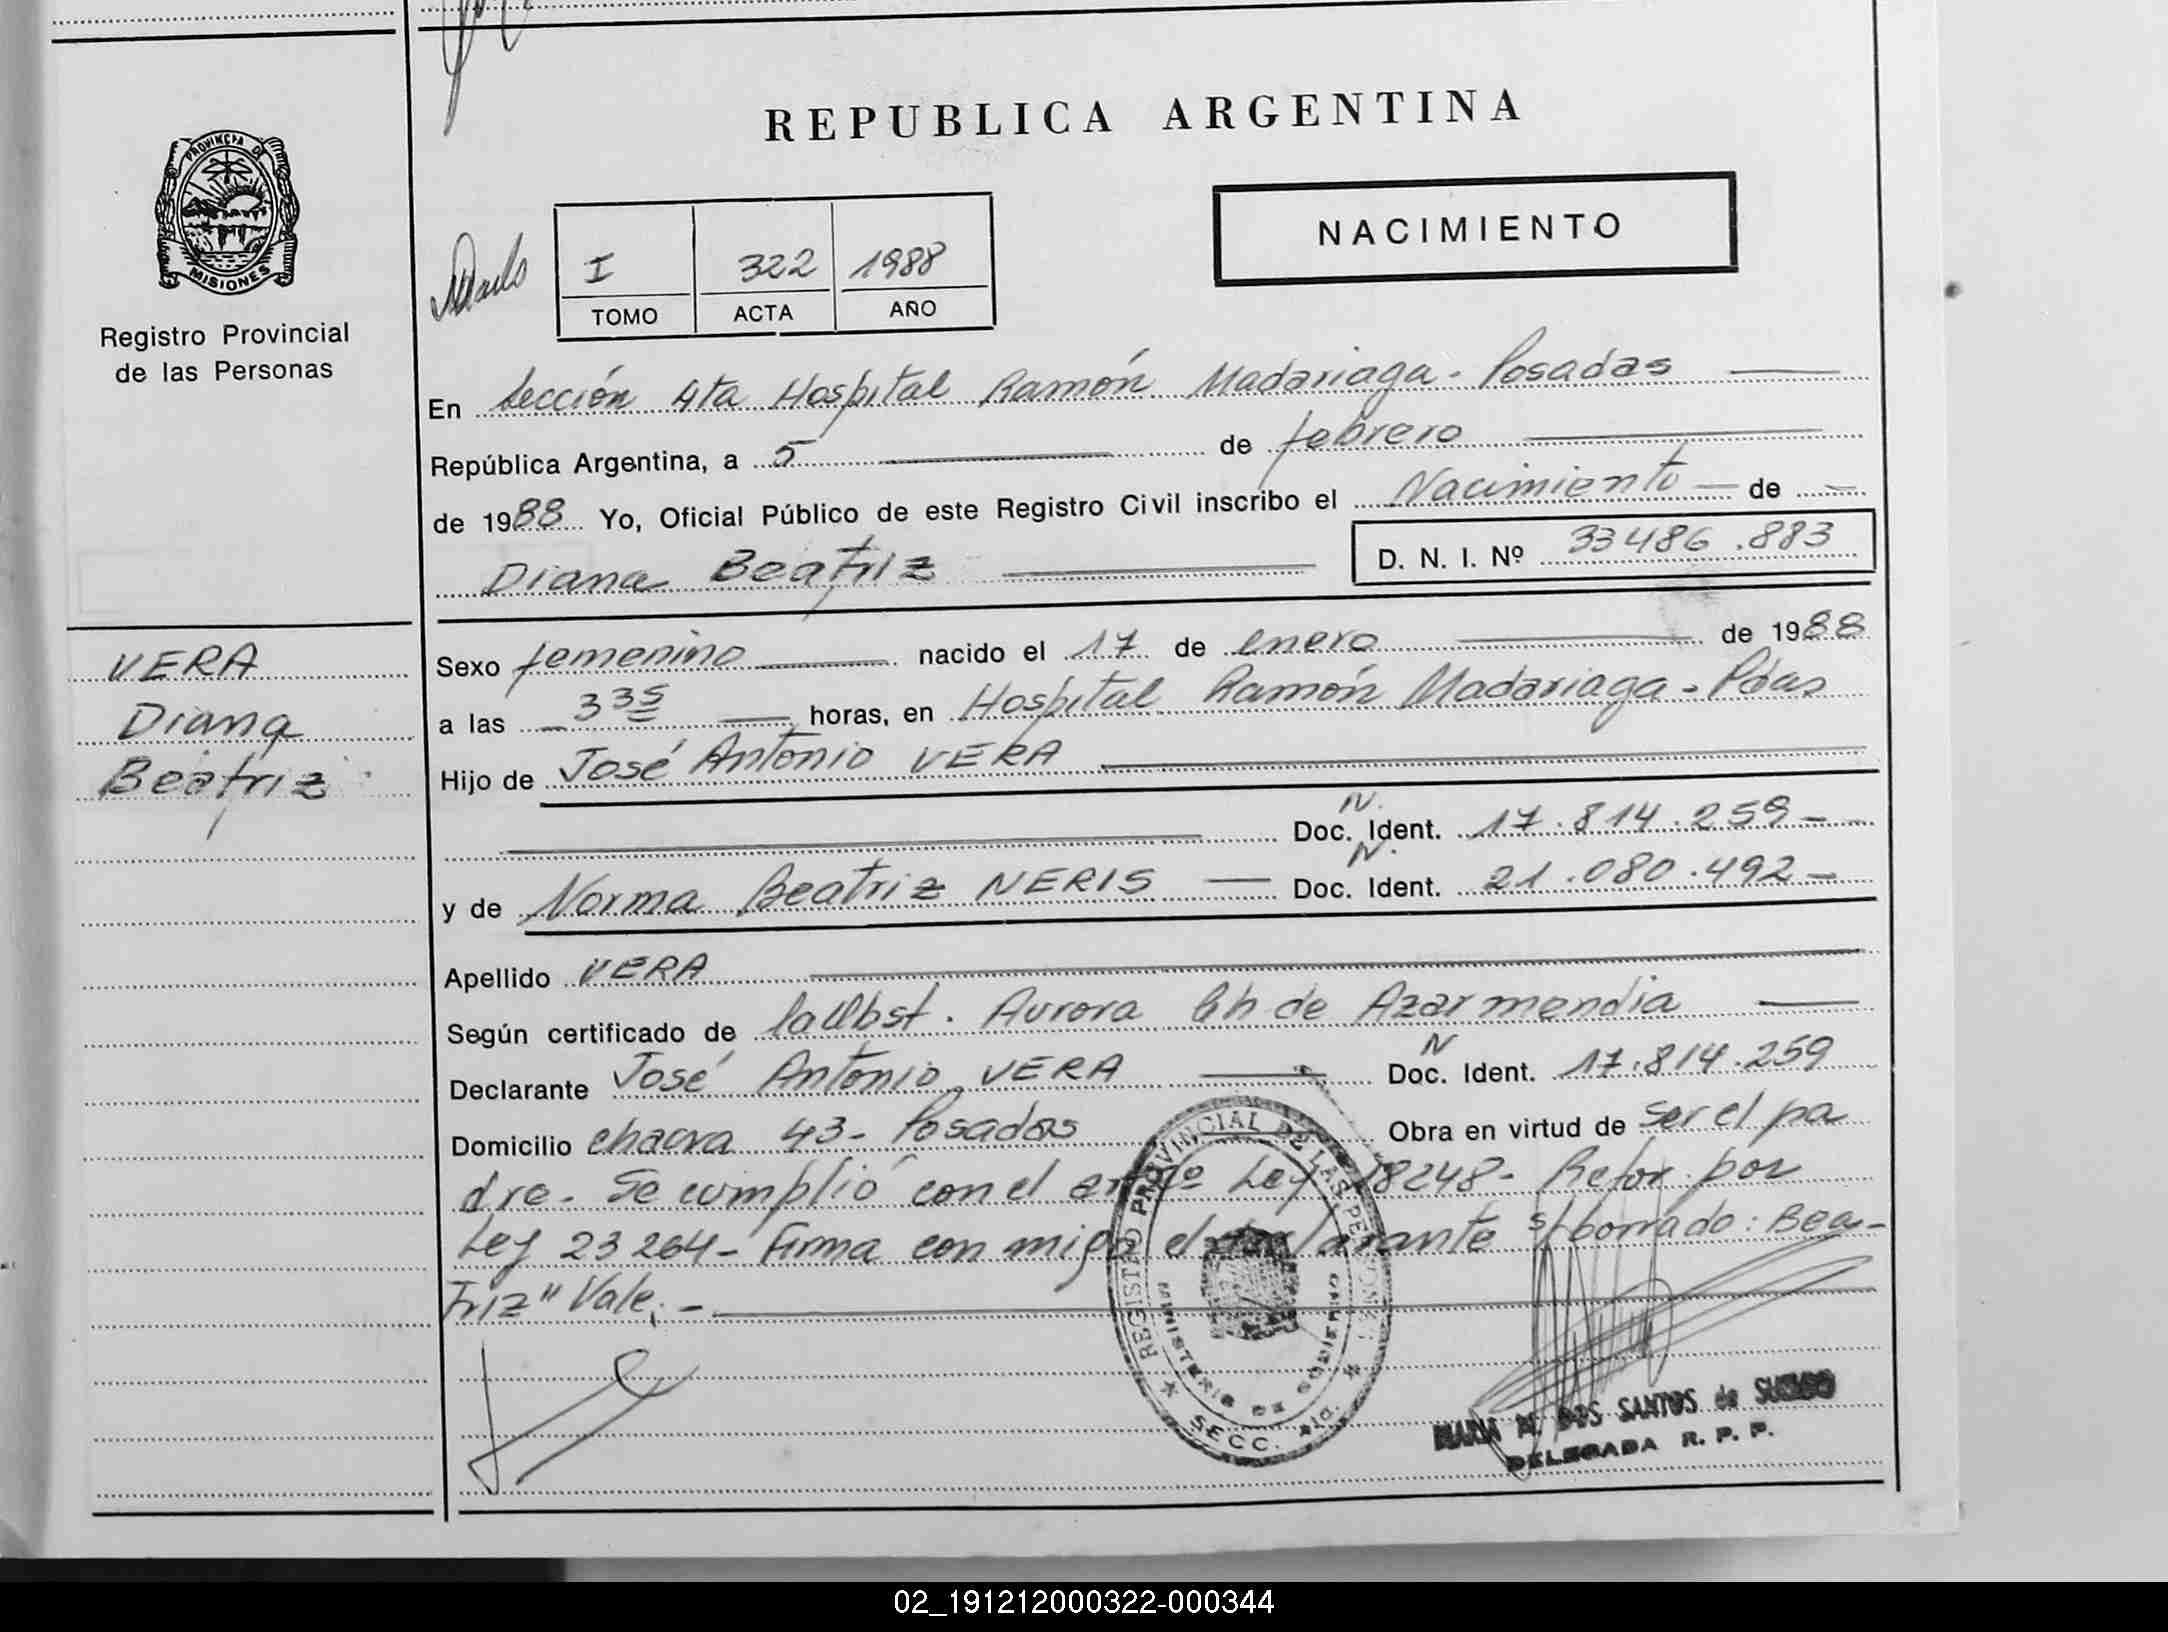 REPUBLICA ARGENTINA
PROVINCIA DE
MISIONES
Registro Provincial
de las Personas
NACIMIENTO
I 322 1988
TOMO ACTA AÑO
En Sección 4ta Hospital Ramón Madariaga - Posadas
República Argentina, a 5 de febrero
de 1988 Yo, Oficial Público de este Registro Civil inscribo el Nacimiento de
Diana Beatriz D. N. I. Nº 33486.883
VERA
Diana
Beatriz
Sexo femenino nacido el 17 de enero de 1988
a las 3 35 horas, en Hospital Ramón Madariaga - Pdas
Hijo de José Antonio VERA
N.
Doc. Ident. 17.814.259 -
N.
y de Norma Beatriz NERIS Doc. Ident. 21.080.492 -
Apellido VERA
Según certificado de la Obst. Aurora Ch de Azarmendia
N
Declarante José Antonio VERA Doc. Ident. 17.814.259
Domicilio chacra 43 - Posadas Obra en virtud de ser el pa
dre - Se cumplió con el Ley 18248 - Refor. por
Ley 23264 - Firma con migo el declarante s/borrado: Bea-
triz" Vale. -
REGISTRO PROVINCIAL DE LAS PERSONAS
MINISTERIO DE GOBIERNO
SECC. 4ta.
MARIA DOS SANTOS de
DELEGADA R. P. P.
02_191212000322-000344